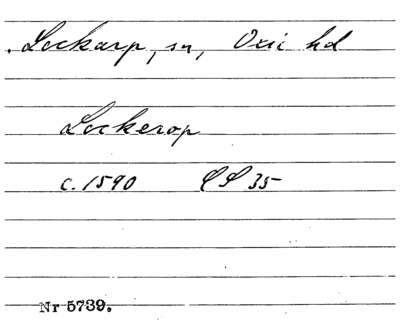 Lockarp, sn, Oxie hd
Lockerop
c. 1590 SS 35
Nr 5739.